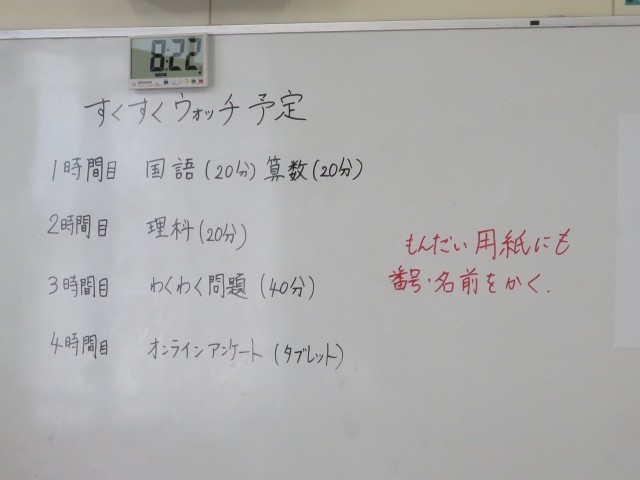 8:22
すくすくウォッチ予定
1時間目 国語(20分) 算数(20分)
2時間目 理科(20分)
3時間目 わくわく問題(40分)
4時間目 オンラインアンケート(タブレット)
もんだい用紙にも
番号・名前をかく.